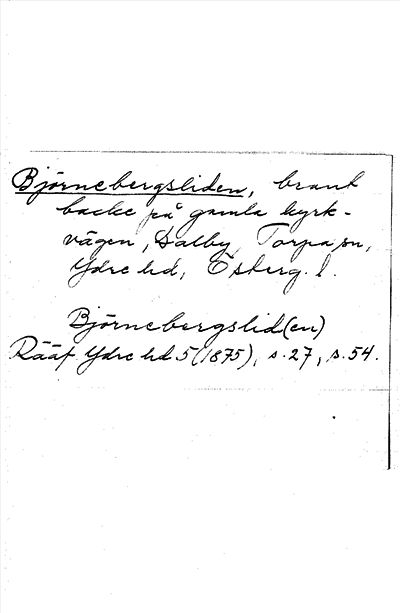 Björnebergsliden, brant
backe på gamla kyrk-
vägen, Dalby, Torpa sn,
Ydre hd, Österg. l.
Björnebergslid(en)
Rääf Ydre hd 5 (1875), s. 27, s. 54.